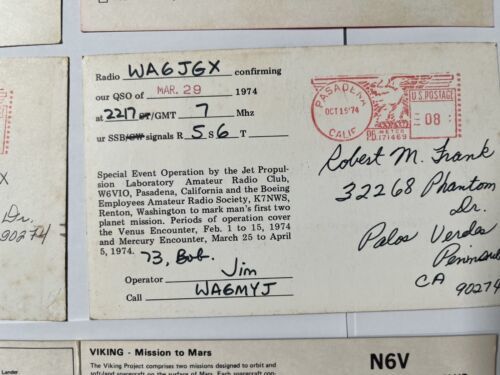 Radio WA6JGX confirming
our QSO of MAR. 29 1974
at 2217 ST/GMT 7 Mhz
ur SSB/CW signals R 5 S 6 T
Special Event Operation by the Jet Propul-
sion Laboratory Amateur Radio Club,
W6VIO, Pasadena, California and the Boeing
Employees Amateur Radio Society, K7NWS,
Renton, Washington to mark man's first two
planet mission. Periods of operation cover
the Venus Encounter, Feb. 1 to 15, 1974
and Mercury Encounter, March 25 to April
5, 1974.
73, Bob.
Operator Jim
Call WA6MYJ
PASADENA
OCT 15'74
CALIF
U.S. POSTAGE
08
P.B. METER
171469
Robert M. Frank
32268 Phantom
Dr.
Palos Verdes
Peninsula
CA 90274
X
Dr.
90274
VIKING - Mission to Mars
The Viking Project comprises two missions designed to orbit and
soft-land spacecraft on the surface of Mars. Each spacecraft con-
N6V
Lander